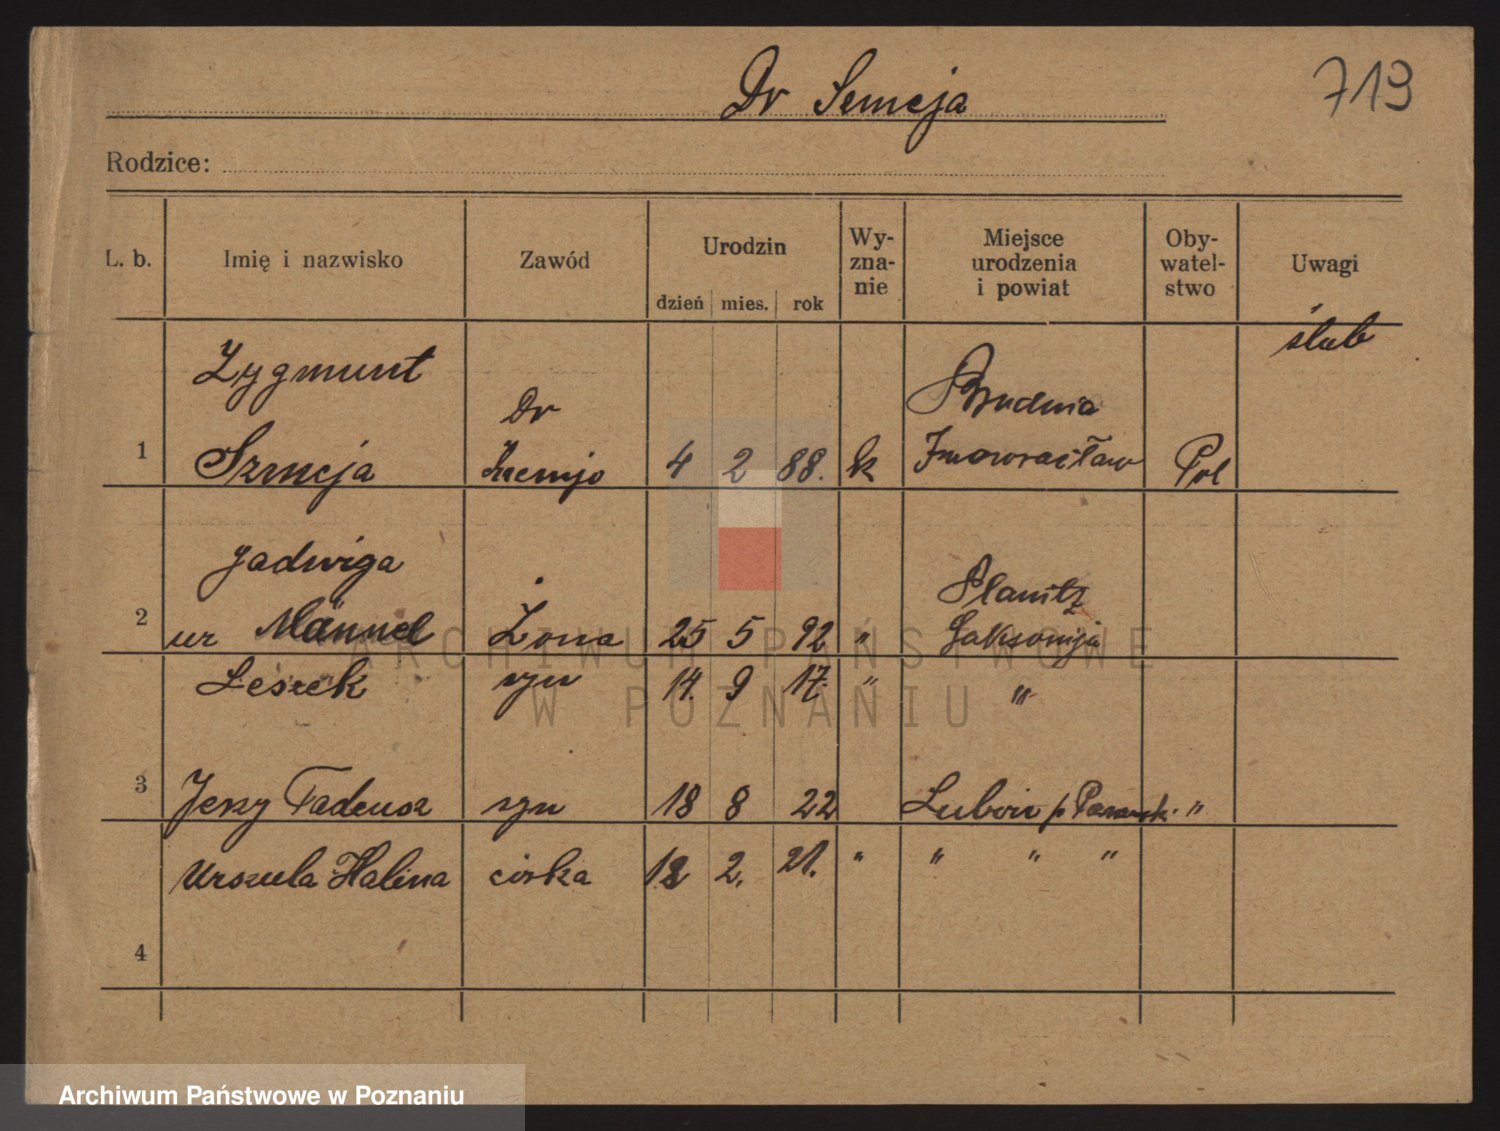 Dr Szmeja
719
Rodzice:
L. b. Imię i nazwisko Zawód Urodzin dzień mies. rok Wy-zna-nie Miejsce urodzenia i powiat Oby-watel-stwo Uwagi
ślub
Zygmunt
Dr Brudnia
1 Szmeja 4 2 88. k Inowracław Pol
Jadwiga
Planitz
2 ur Männel Żona 25 5 92 " Saksonija
Leszek syn 14. 9 17. " "
3 Jerzy Tadeusz syn 18 8 22 Luboń p Poznańsk. "
Urszula Halina córka 12 2. 21. " " " "
4
ARCHIWUM PAŃSTWOWE
W POZNANIU
Archiwum Państwowe w Poznaniu